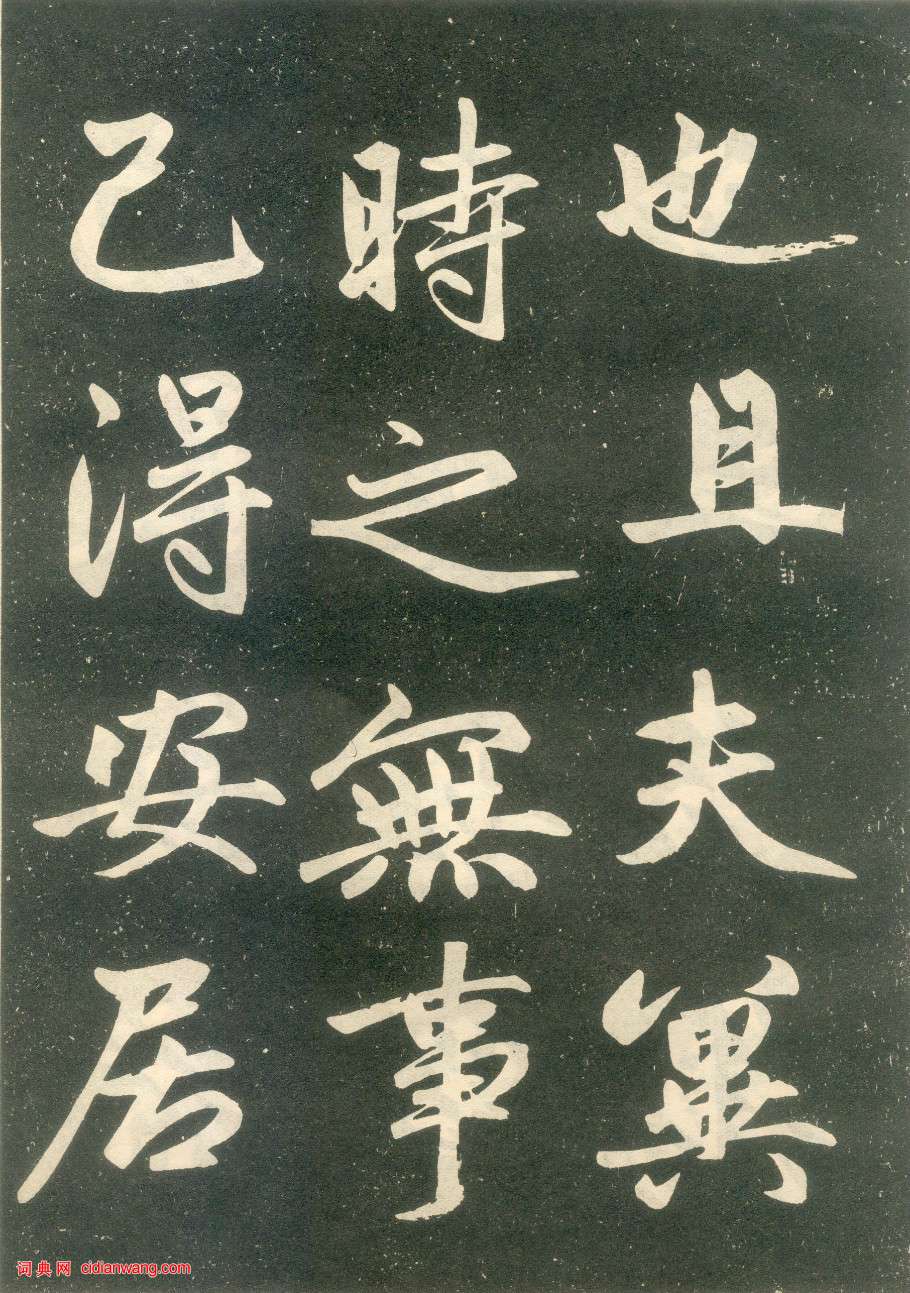 也且夫冀
時之無事
己得安居
词典网 cidianwang.com